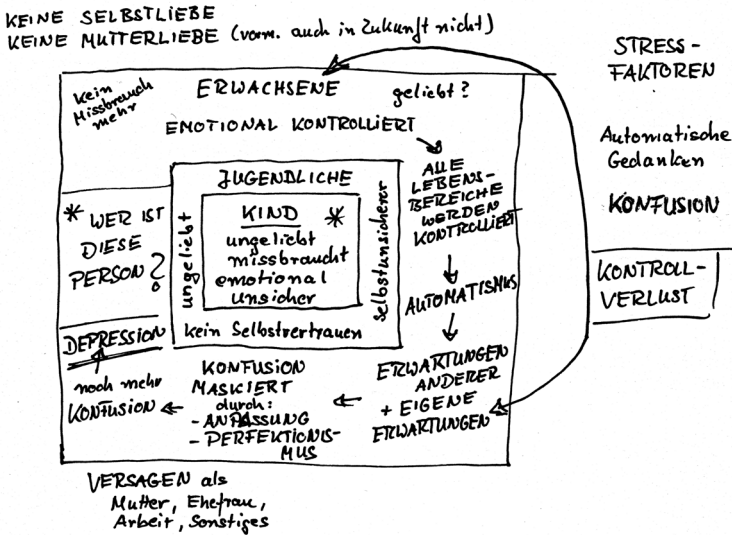 KEINE SELBSTLIEBE
KEINE MUTTERLIEBE (vorm. auch in Zukunft nicht)
STRESS-
FAKTOREN
Automatische
Gedanken
KONFUSION
KONTROLL-
VERLUST
Kein
Missbrauch
mehr
ERWACHSENE
geliebt?
EMOTIONAL KONTROLLIERT
ALLE
LEBENS-
BEREICHE
WERDEN
KONTROLLIERT
AUTOMATISMUS
ERWARTUNGEN
ANDERER
+ EIGENE
ERWARTUNGEN
JUGENDLICHE
ungeliebt
Selbstunsicherer
kein Selbstvertrauen
KIND *
ungeliebt
missbraucht
emotional
unsicher
* WER IST
DIESE
PERSON?
DEPRESSION
noch mehr
KONFUSION
KONFUSION
MASKIERT
durch:
- ANPASSUNG
- PERFEKTIONIS-
MUS
VERSAGEN als
Mutter, Ehefrau,
Arbeit, Sonstiges